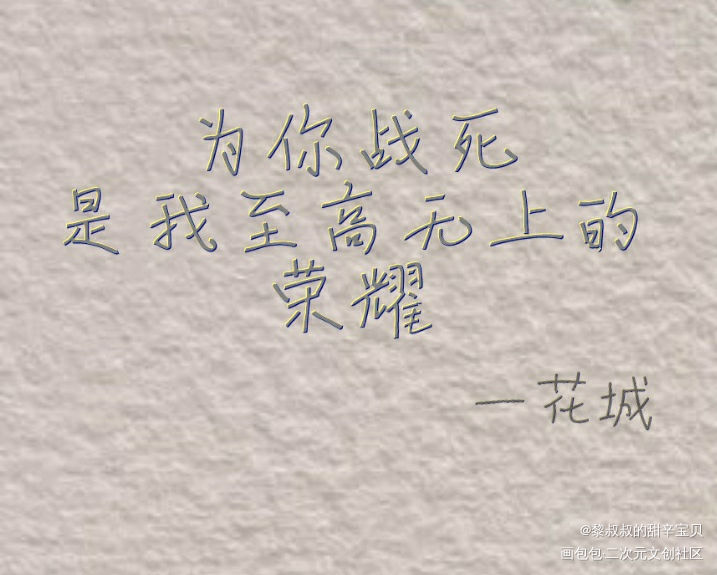 为你战死
是我至高无上的
荣耀
一花城
@黎叔叔的甜辛宝贝
画包包·二次元文创社区